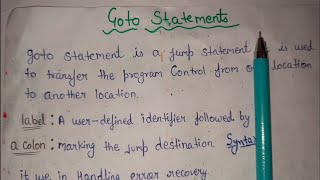 Goto Statements
goto statement is a jump statement is used
to transfer the program Control from location
to another location.
label: A user-defined identifier followed by
a colon: marking the jump destination.
it use in Handling error recovery